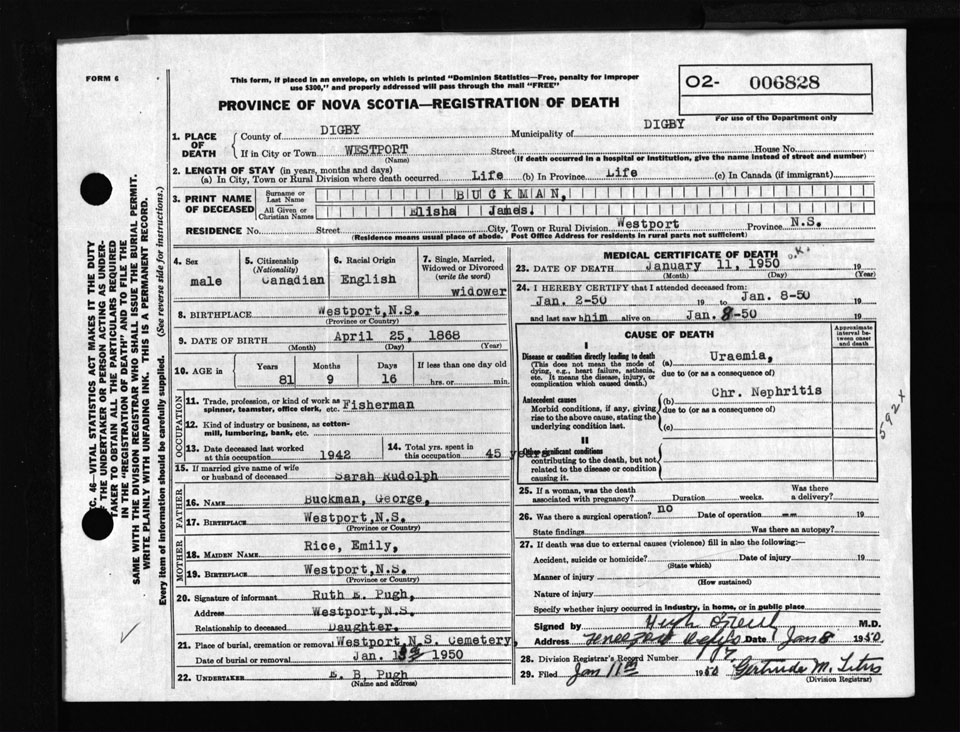 FORM 6
This form, if placed in an envelope, on which is printed "Dominion Statistics—Free, penalty for improper
use $300," and properly addressed will pass through the mail "FREE"
O2- 006828
For use of the Department only
PROVINCE OF NOVA SCOTIA—REGISTRATION OF DEATH
1. PLACE OF DEATH
County of DIGBY Municipality of DIGBY
If in City or Town WESTPORT Street House No.
(Name) (If death occurred in a hospital or institution, give the name instead of street and number)
2. LENGTH OF STAY (in years, months and days)
(a) In City, Town or Rural Division where death occurred Life (b) In Province Life (c) In Canada (if immigrant)
3. PRINT NAME OF DECEASED
Surname or Last Name BUCKMAN,
All Given or Christian Names Elisha James.
RESIDENCE No. Street City, Town or Rural Division Westport Province N.S.
(Residence means usual place of abode. Post Office Address for residents in rural parts not sufficient)
4. Sex
male
5. Citizenship
(Nationality)
Canadian
6. Racial Origin
English
7. Single, Married,
Widowed or Divorced
(write the word)
widower
8. BIRTHPLACE Westport, N.S.
(Province or Country)
9. DATE OF BIRTH April 25, 1868
(Month) (Day) (Year)
10. AGE in
Years Months Days If less than one day old
81 9 16 hrs. or min.
OCCUPATION
11. Trade, profession, or kind of work as
spinner, teamster, office clerk, etc. Fisherman
12. Kind of industry or business, as cotton-
mill, lumbering, bank, etc.
13. Date deceased last worked
at this occupation 1942
14. Total yrs. spent in
this occupation 45 years
15. If married give name of wife
or husband of deceased Sarah Rudolph
FATHER
16. Name Buckman, George,
17. Birthplace Westport, N.S.
(Province or Country)
MOTHER
18. Maiden Name Rice, Emily,
19. Birthplace Westport, N.S.
(Province or Country)
20. Signature of informant Ruth E. Pugh,
Address Westport, N.S.
Relationship to deceased Daughter.
21. Place of burial, cremation or removal Westport N.S. Cemetery,
Date of burial or removal Jan. 1950
22. Undertaker E. B. Pugh
(Name and address)
MEDICAL CERTIFICATE OF DEATH O.K.
23. DATE OF DEATH January 11, 1950 19
(Month) (Day) (Year)
24. I HEREBY CERTIFY that I attended deceased from:
Jan. 2-50 19 to Jan. 8-50 19
and last saw him alive on Jan. 8-50 19
CAUSE OF DEATH
Approximate interval between onset and death
I
Disease or condition directly leading to death (a) Uraemia,
(This does not mean the mode of
dying, e.g., heart failure, asthenia,
etc. It means the disease, injury, or
complication which caused death.)
due to (or as a consequence of)
Antecedent causes (b) Chr. Nephritis
Morbid conditions, if any, giving
rise to the above cause, stating the
underlying condition last.
due to (or as a consequence of)
(c)
592x
II
Other significant conditions
contributing to the death, but not
related to the disease or condition
causing it.
25. If a woman, was the death
associated with pregnancy? Duration weeks. Was there
a delivery?
26. Was there a surgical operation? no Date of operation -- 19
State findings Was there an autopsy?
27. If death was due to external causes (violence) fill in also the following:—
Accident, suicide or homicide? Date of injury 19
(State which)
Manner of injury
(How sustained)
Nature of injury
Specify whether injury occurred in industry, in home, or in public place
Signed by Hugh M.D.
Address Date Jan 8 1950
28. Division Registrar's Record Number
29. Filed Jan 11th 1950 Gertrude M.
(Division Registrar)
C. 46—VITAL STATISTICS ACT MAKES IT THE DUTY
OF THE UNDERTAKER OR PERSON ACTING AS UNDER-
TAKER TO OBTAIN ALL THE PARTICULARS REQUIRED
IN THE "REGISTRATION OF DEATH" AND TO FILE THE
SAME WITH THE DIVISION REGISTRAR WHO SHALL ISSUE THE BURIAL PERMIT.
WRITE PLAINLY WITH UNFADING INK. THIS IS A PERMANENT RECORD.
Every item of information should be carefully supplied. (See reverse side for instructions.)